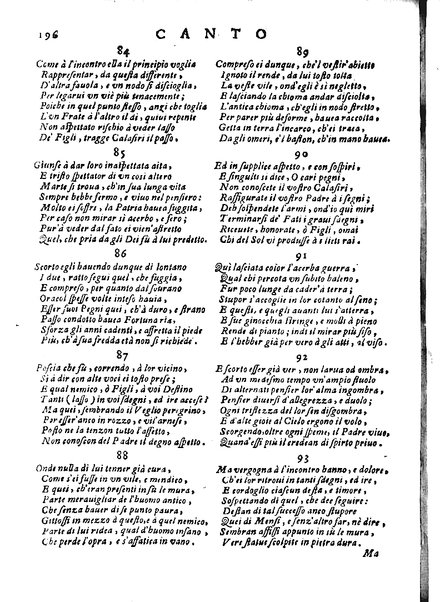 196 CANTO
84
Come à l'incontro ella il principio voglia
Rappresentar, da questa differente,
D'altra fauola, e vn nodo si discioglia,
Per legarui vn viè più tenacemente;
Poiche in quel punto stesso, anzi che toglia
L'vn Frate à l'altro il dì, quiui repente
Non aspettato rischio à veder lasso
De' Figli, tragge Calasiri il passo.
85
Giunse à dar loro inaspettata aita,
E tristo spettator di vn così altero
Marte si troua, ch'in sua lunga vita
Sempre hebbe fermo, e viuo nel pensiero:
Molto ei soffre, la Patria hauea fuggita,
Per caso non mirar sì acerbo, e fero;
Pur'à veder dal fato ei vien'astretto
Quel, che pria da gli Dei fù à lui predetto.
86
Scorto egli hauendo dunque di lontano
I due, ratto seguì quel che fuggia,
E compreso, per quanto dal sourano
Oracol spesse volte inteso hauia,
Esser suoi Pegni quei, ch'à duro, e strano
Passo condotto hauea Fortuna ria,
Sforza gli anni cadenti, e affretta il piede
Più, ch'à sua fredda età non si richiede.
87
Poscia che fù, correndo, à lor vicino,
Si à dir con alte voci il tosto prese;
E qual nemico, ò Figli, à voi Destino
Tanti (lasso) in voi sdegni, ed ire accese?
Ma quei, sembrando il Veglio peregrino,
Per esser'anzo in rozzo, e vil'arnese,
Posto ne la tenzon tutto l'affetto,
Non conoscon del Padre il degno aspetto.
88
Onde nulla di lui tenner già cura,
Come s'ei fusse in vn vile, e mendico,
E quei, ch'eran presenti in sù le mura,
Parte merauigliar de l'huomo antico,
Che senza hauer di se punto paura,
Gittossi in mezzo à questo, e à quel nemico,
Parte di lui ridea, qual d'huomo insano,
Che perde l'opra, e s'affatica in vano.
89
Compreso ei dunque, che'l vestir'abietto
Ignoto il rende, da lui tosto tolta
La veste vile, ond'egli è sì negletto,
E lasciando la chioma andar disciolta,
L'antica chioma, ch'infino à quell'effetto,
Per parer più deforme, hauea raccolta
Getta in terra l'incarco, ch'ei traea,
Da gli omeri, e'l baston, ch'in mano hauea.
90
Ed in supplice aspetto, e con sospiri,
E singulti sì dice, O cari pegni
Non conoscete il vostro Calasiri,
Raffigurate il vostro Padre à i segni;
Deh sospendete l'armi, ond'io quì miri
Terminarsi de' Fati i graui sdegni,
Riceuete, honorate, ò Figli, omai
Chi del Sol vi produsse à i lieti rai.
91
Quì lasciata color l'acerba guerra,
Qual chi percota vn subito baleno,
Fur poco lunge da cader à terra;
Stupor l'accoglie in lor cotanto al seno;
E questi, e quegli auanti lui s'atterra,
E sue ginocchia stringe, e molli à pieno
Rende di pianto; indi il mirar più fiso,
E l'hebber già per vero à gli atti, al viso.
92
E scorto esser già ver, non larua od ombra,
Ad vn medesmo tempo vn'ampio stuolo
Di alternati pensier lor'alma ingombra,
Pensier diuersi d'allegrezza, e duolo;
Ogni tristezza del lor sen disgombra,
E d'alte gioie al Cielo ergono il volo,
Scorgendo, oltre ogni speme, il Padre viuo,
Quand'essi più il credean di spirto priuo.
93
Ma vergogna à l'incontro hanno, e dolore,
Ch'ei lor ritroui in tanti sdegni, ed ire,
E cordoglio ciascun desta, e timore,
Sospettando di quel, che dee seguire:
Destan di tal successo anco stupore
Quei di Menfi, e senz'altro far, nè dire,
Sembran affissi appunto in sù le mura,
Vere statue scolpite in pietra dura.
Ma